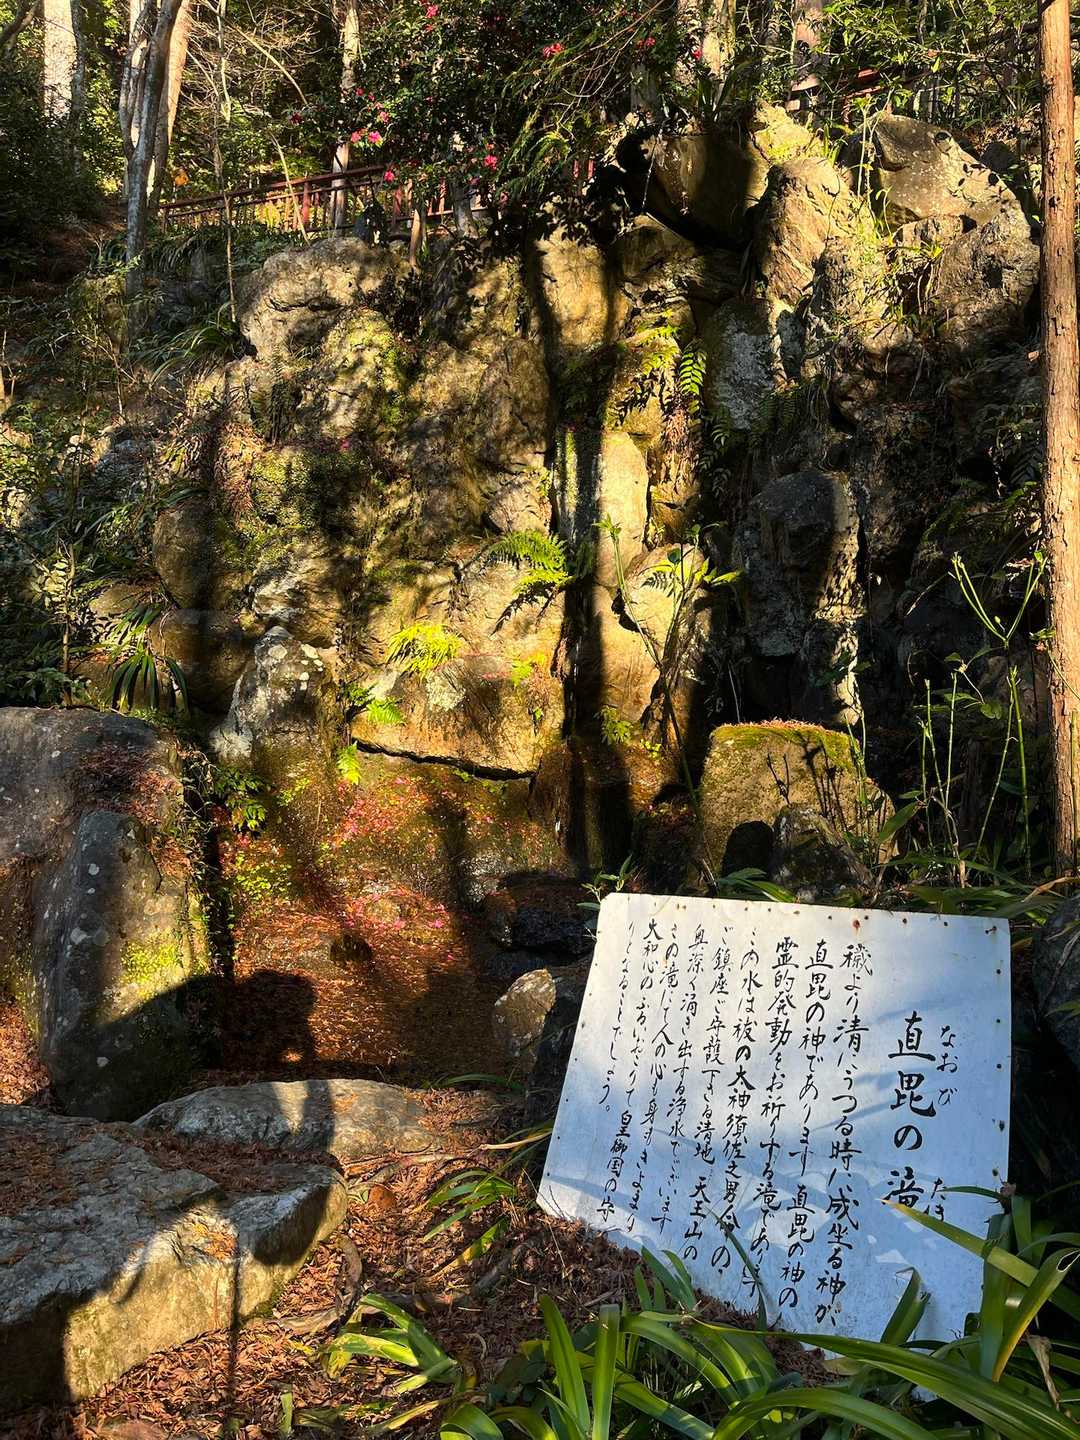 なおび たき
直毘の滝
穢より清にうつる時に成坐る神が、
直毘の神であります 直毘の神の
霊的発動をお祈りする滝であります
この水は祓の大神須佐之男命の
ご鎮座ご守護下さる清地 天王山の
奥深く湧き出する浄水でございます
この滝にて人の心も身もきよまり
大和心のふるいざりて皇御国の守
りとなることでしょう。